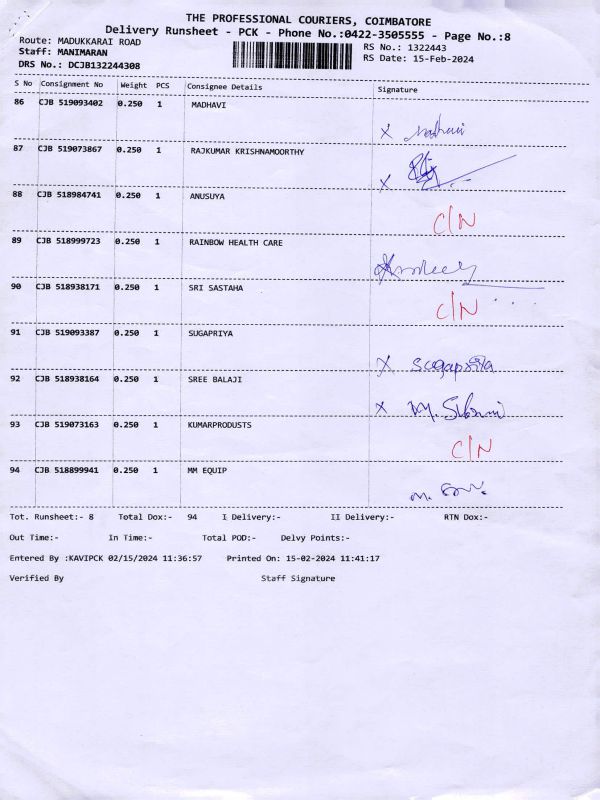 THE PROFESSIONAL COURIERS, COIMBATORE
Delivery Runsheet - PCK - Phone No.:0422-3505555 - Page No.:8
Route: MADUKKARAI ROAD
RS No.: 1322443
Staff: MANIMARAN
RS Date: 15-Feb-2024
DRS No.: DCJB132244308
S No Consignment No Weight PCS Consignee Details Signature
86 CJB 519093402 0.250 1 MADHAVI
X Madhavi
87 CJB 519073867 0.250 1 RAJKUMAR KRISHNAMOORTHY
X
88 CJB 518984741 0.250 1 ANUSUYA
C/N
89 CJB 518999723 0.250 1 RAINBOW HEALTH CARE
90 CJB 518938171 0.250 1 SRI SASTAHA
C/N
91 CJB 519093387 0.250 1 SUGAPRIYA
X Sugapriya
92 CJB 518938164 0.250 1 SREE BALAJI
X
93 CJB 519073163 0.250 1 KUMARPRODUSTS
C/N
94 CJB 518899941 0.250 1 MM EQUIP
Tot. Runsheet:- 8 Total Dox:- 94 I Delivery:- II Delivery:- RTN Dox:-
Out Time:- In Time:- Total POD:- Delvy Points:-
Entered By :KAVIPCK 02/15/2024 11:36:57 Printed On: 15-02-2024 11:41:17
Verified By Staff Signature